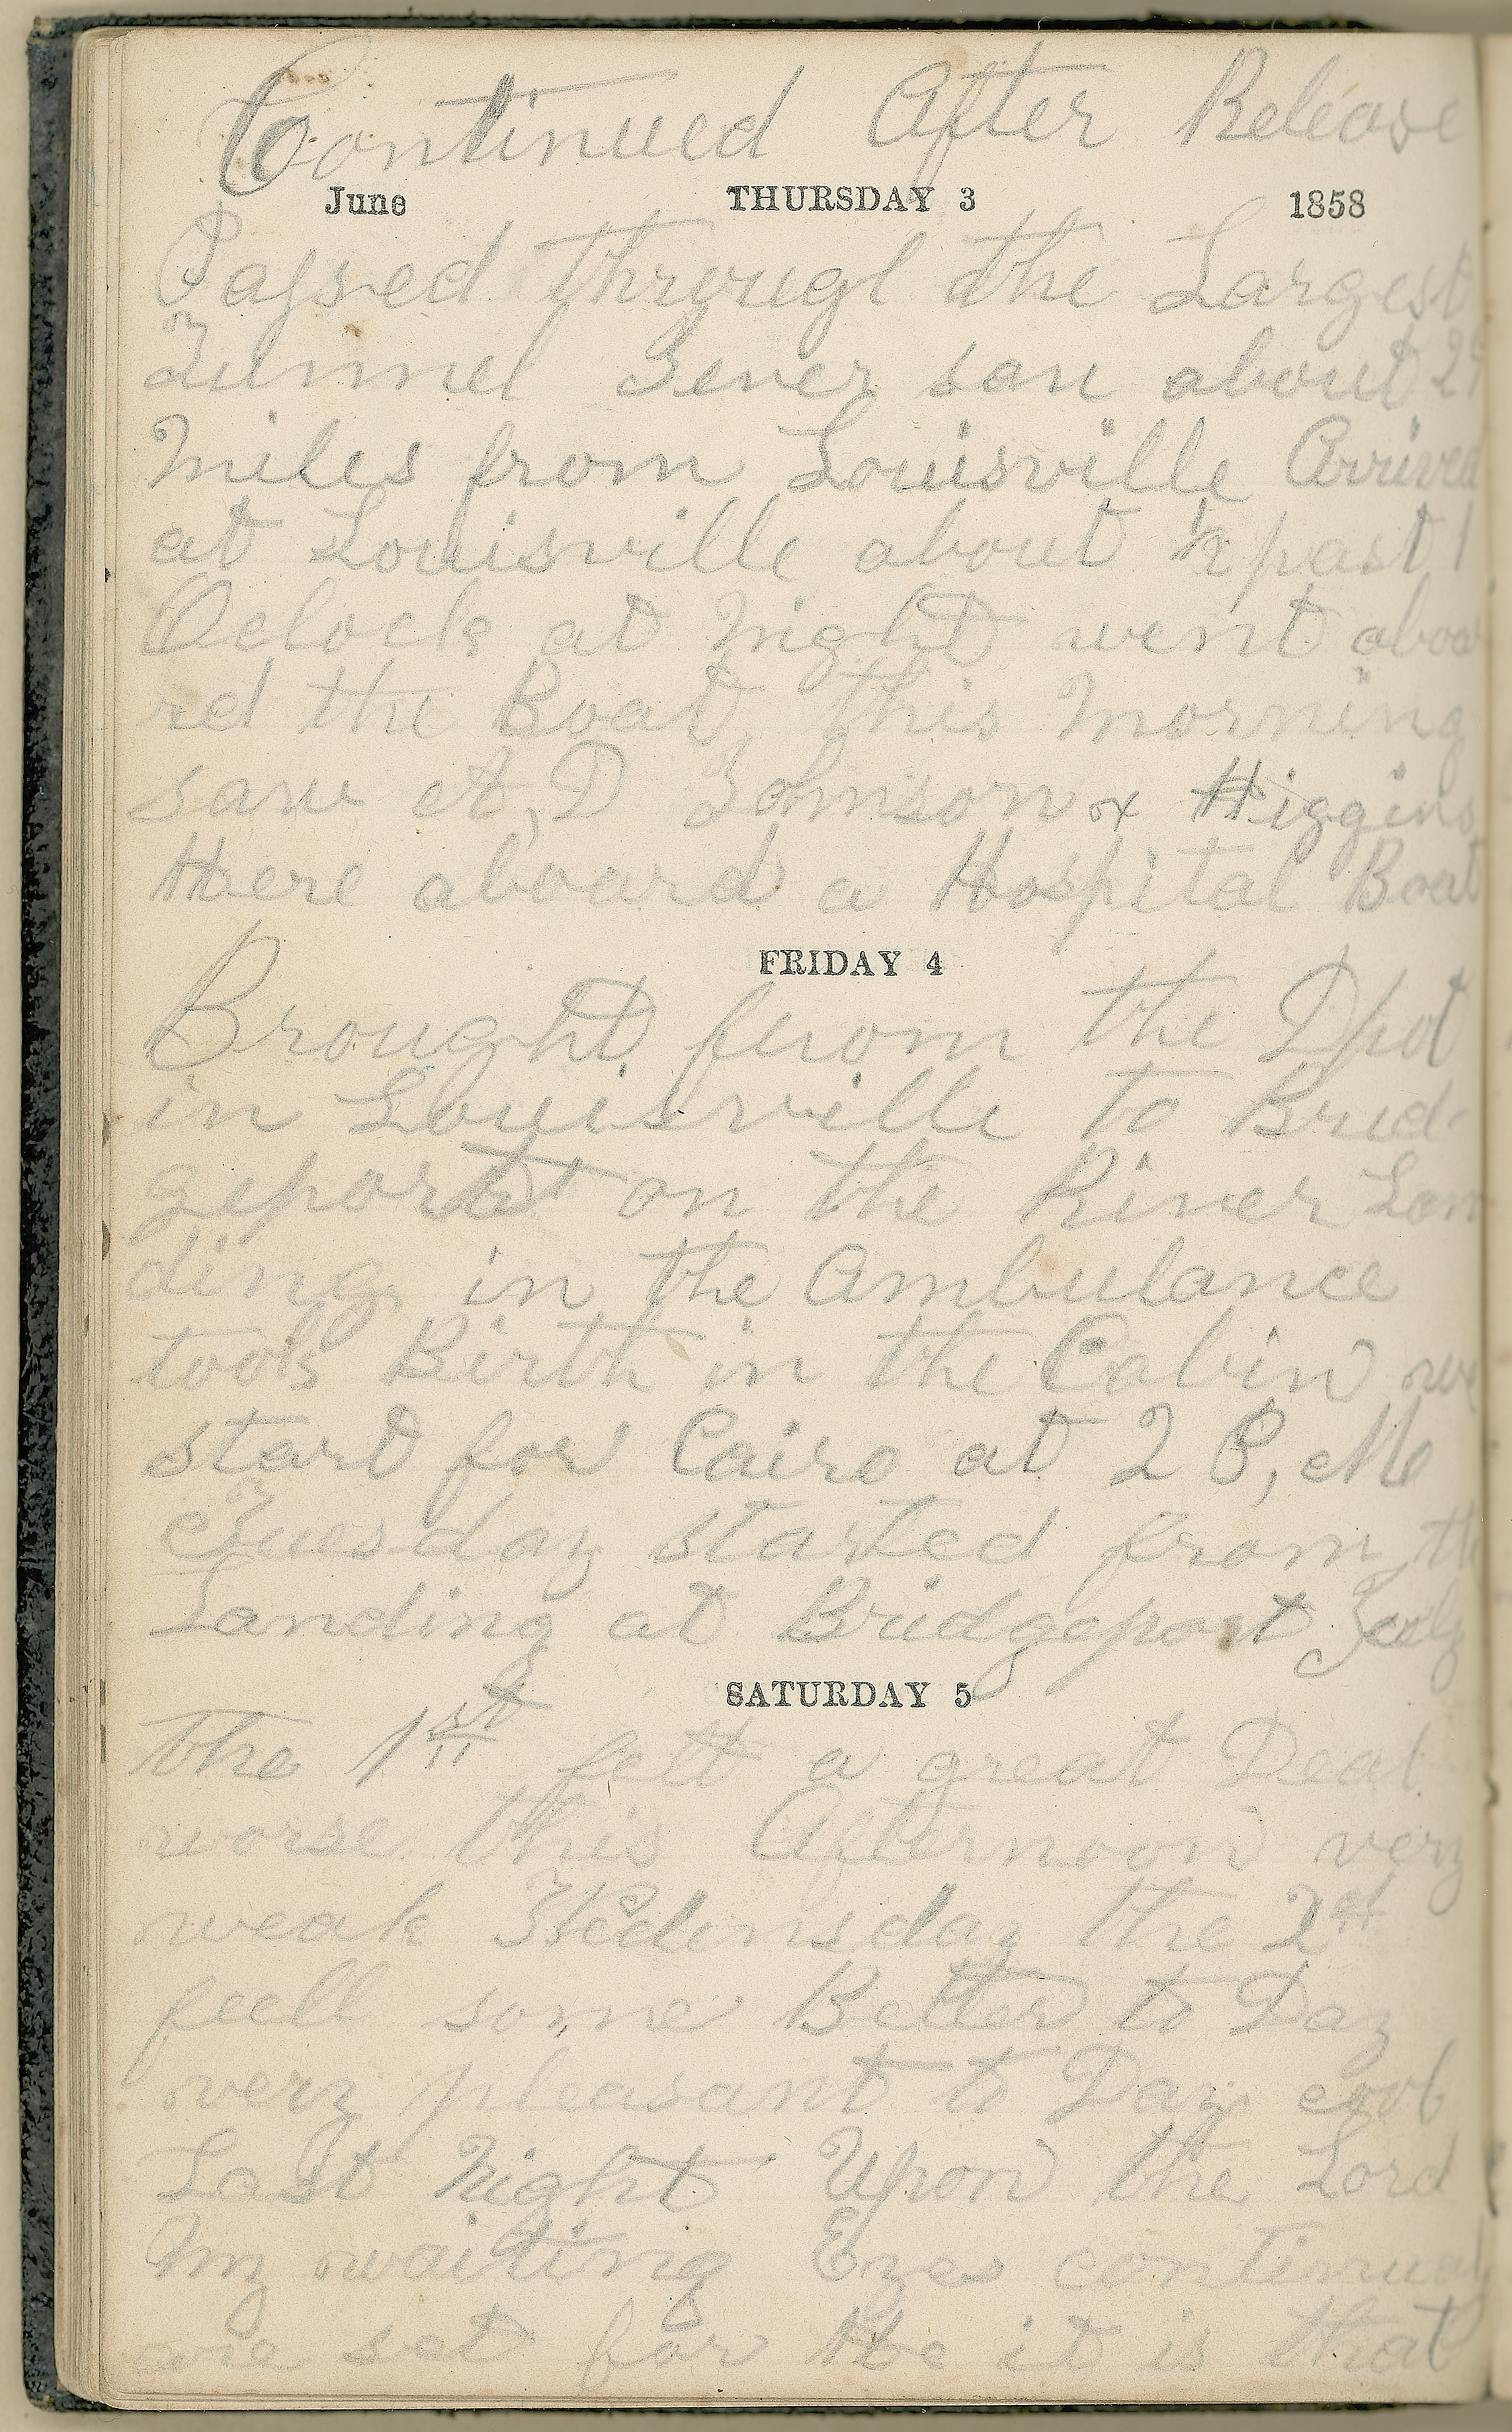 Continued After Release
June THURSDAY 3 1858
Passed through the Largest
Tunnel I ever saw about 29
Miles from Louisville Arrived
at Louisville about ½ past 1
Oclock at Night went aboa
rd the Boat this Morning
saw A, D Johnson & Higgins
there aboard a Hospital Boat
FRIDAY 4
Brought from the Dpot
in Louisville to Brid-
geport on the River Lan
ding in the Ambulance
took Birth in the Cabin we
start for Cairo at 2 P, M
Tuesday started from the
Landing at Bridgeport July
SATURDAY 5
the 1st felt a great Deal
worse this Afternoon very
weak Wedensday the 2st
feell some Better to Day
very pleasant to Day cool
Last Night Upon the Lord
My waiting Eyes continual
are set for He it is that